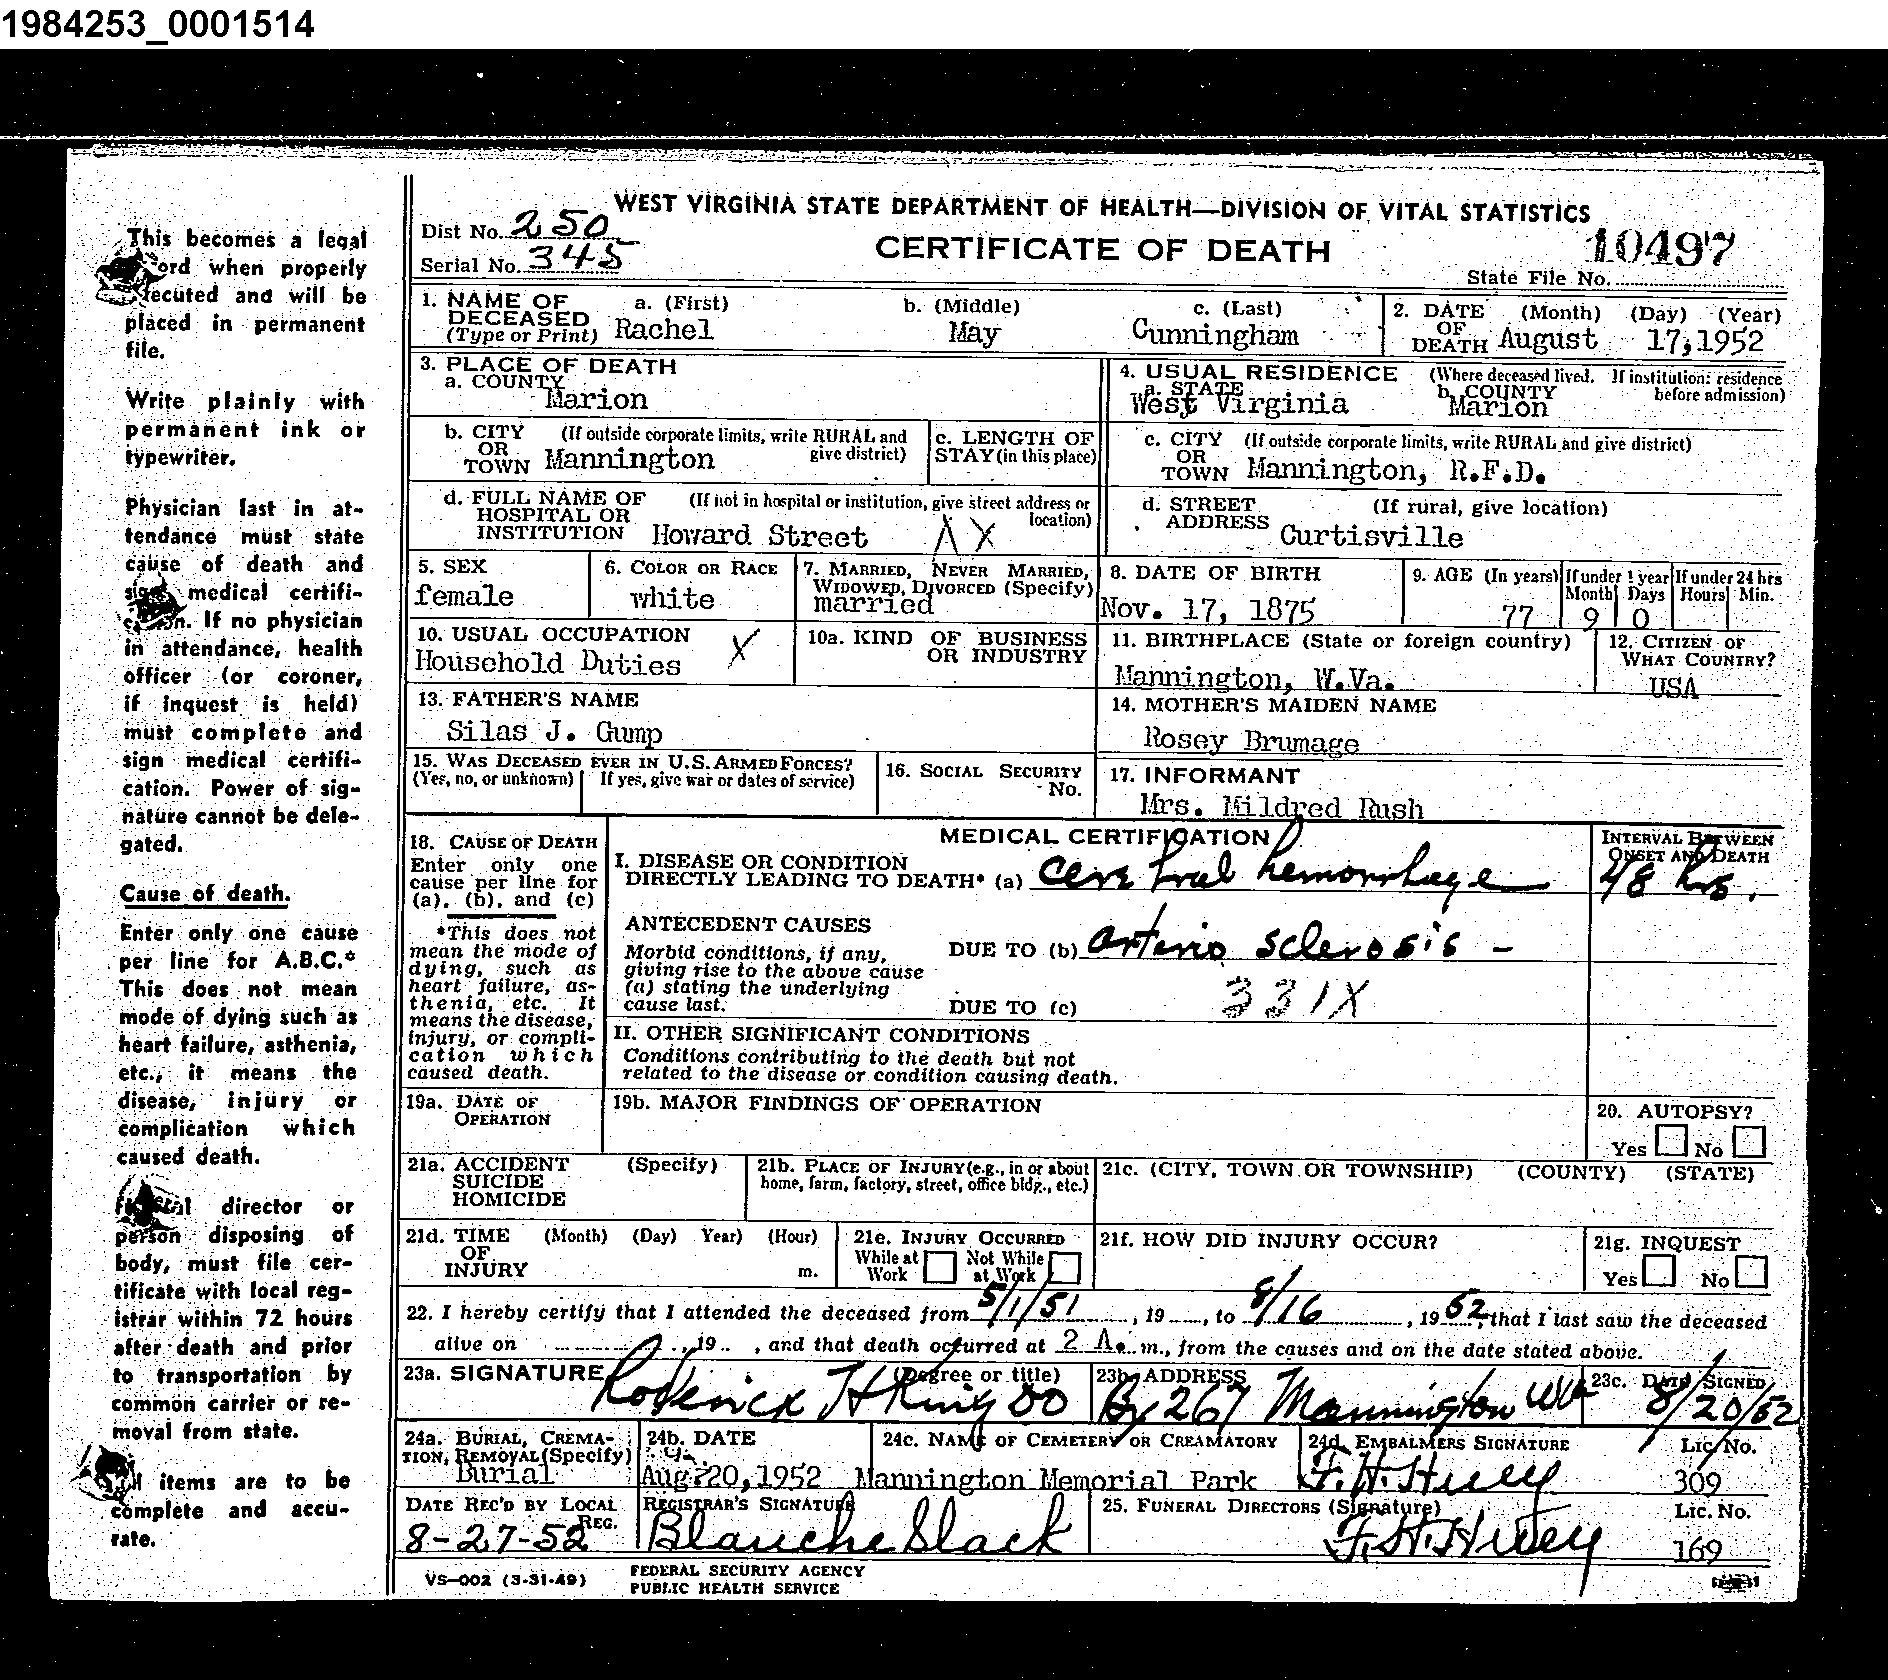 1984253_0001514
This becomes a legal
ord when properly
ecuted and will be
placed in permanent
file.
Write plainly with
permanent ink or
typewriter.
Physician last in at-
tendance must state
cause of death and
sign medical certifi-
n. If no physician
in attendance, health
officer (or coroner,
if inquest is held)
must complete and
sign medical certifi-
cation. Power of sig-
nature cannot be dele-
gated.
Cause of death.
Enter only one cause
per line for A.B.C.*
This does not mean
mode of dying such as
heart failure, asthenia,
etc., it means the
disease, injury or
complication which
caused death.
director or
person disposing of
body, must file cer-
tificate with local reg-
istrar within 72 hours
after death and prior
to transportation by
common carrier or re-
moval from state.
items are to be
complete and accu-
rate.
WEST VIRGINIA STATE DEPARTMENT OF HEALTH—DIVISION OF VITAL STATISTICS
Dist No. 250
CERTIFICATE OF DEATH
10497
Serial No. 345
State File No.
1. NAME OF DECEASED (Type or Print) a. (First) Rachel b. (Middle) May c. (Last) Cunningham
2. DATE OF DEATH (Month) (Day) (Year) August 17, 1952
3. PLACE OF DEATH
a. COUNTY Marion
4. USUAL RESIDENCE (Where deceased lived. If institution: residence before admission)
a. STATE West Virginia b. COUNTY Marion
b. CITY OR TOWN (If outside corporate limits, write RURAL and give district) Mannington
c. LENGTH OF STAY (in this place)
c. CITY OR TOWN (If outside corporate limits, write RURAL and give district) Mannington, R.F.D.
d. FULL NAME OF HOSPITAL OR INSTITUTION (If not in hospital or institution, give street address or location) Howard Street
d. STREET ADDRESS (If rural, give location) Curtisville
5. SEX female
6. COLOR OR RACE white
7. MARRIED, NEVER MARRIED, WIDOWED, DIVORCED (Specify) married
8. DATE OF BIRTH Nov. 17, 1875
9. AGE (In years) 77 If under 1 year Month 9 Days 0 If under 24 hrs Hours Min.
10. USUAL OCCUPATION Household Duties X
10a. KIND OF BUSINESS OR INDUSTRY
11. BIRTHPLACE (State or foreign country) Mannington, W.Va.
12. CITIZEN OF WHAT COUNTRY? USA
13. FATHER'S NAME
Silas J. Gump
14. MOTHER'S MAIDEN NAME
Rosey Brumage
15. WAS DECEASED EVER IN U.S. ARMED FORCES?
(Yes, no, or unknown) If yes, give war or dates of service)
16. SOCIAL SECURITY No.
17. INFORMANT
Mrs. Mildred Rush
18. CAUSE OF DEATH
Enter only one
cause per line for
(a), (b), and (c)
*This does not
mean the mode of
dying, such as
heart failure, as-
thenia, etc. It
means the disease,
injury, or compli-
cation which
caused death.
MEDICAL CERTIFICATION
INTERVAL BETWEEN ONSET AND DEATH
I. DISEASE OR CONDITION
DIRECTLY LEADING TO DEATH* (a) cerebral hemorrhage 48 hrs.
ANTECEDENT CAUSES
Morbid conditions, if any,
giving rise to the above cause
(a) stating the underlying
cause last.
DUE TO (b) arterio sclerosis -
DUE TO (c) 331X
II. OTHER SIGNIFICANT CONDITIONS
Conditions contributing to the death but not
related to the disease or condition causing death.
19a. DATE OF OPERATION
19b. MAJOR FINDINGS OF OPERATION
20. AUTOPSY?
Yes No
21a. ACCIDENT SUICIDE HOMICIDE (Specify)
21b. PLACE OF INJURY (e.g., in or about home, farm, factory, street, office bldg., etc.)
21c. (CITY, TOWN OR TOWNSHIP) (COUNTY) (STATE)
21d. TIME OF INJURY (Month) (Day) Year) (Hour) m.
21e. INJURY OCCURRED
While at Work Not While at Work
21f. HOW DID INJURY OCCUR?
21g. INQUEST
Yes No
22. I hereby certify that I attended the deceased from 5/1/51, 19 , to 8/16, 1952, that I last saw the deceased
alive on , 19 , and that death occurred at 2 A. m., from the causes and on the date stated above.
23a. SIGNATURE (Degree or title) Roderick H King DO
23b. ADDRESS Bx 267 Mannington WVa
23c. DATE SIGNED 8/20/52
24a. BURIAL, CREMATION, REMOVAL (Specify) Burial
24b. DATE Aug. 20, 1952
24c. NAME OF CEMETERY OR CREAMATORY Mannington Memorial Park
24d. EMBALMERS SIGNATURE F.H. Huey Lic. No. 309
DATE REC'D BY LOCAL REG. 8-27-52
REGISTRAR'S SIGNATURE Blanche Slack
25. FUNERAL DIRECTORS (Signature) F.H. Huey Lic. No. 169
VS-002 (3-31-49)
FEDERAL SECURITY AGENCY
PUBLIC HEALTH SERVICE